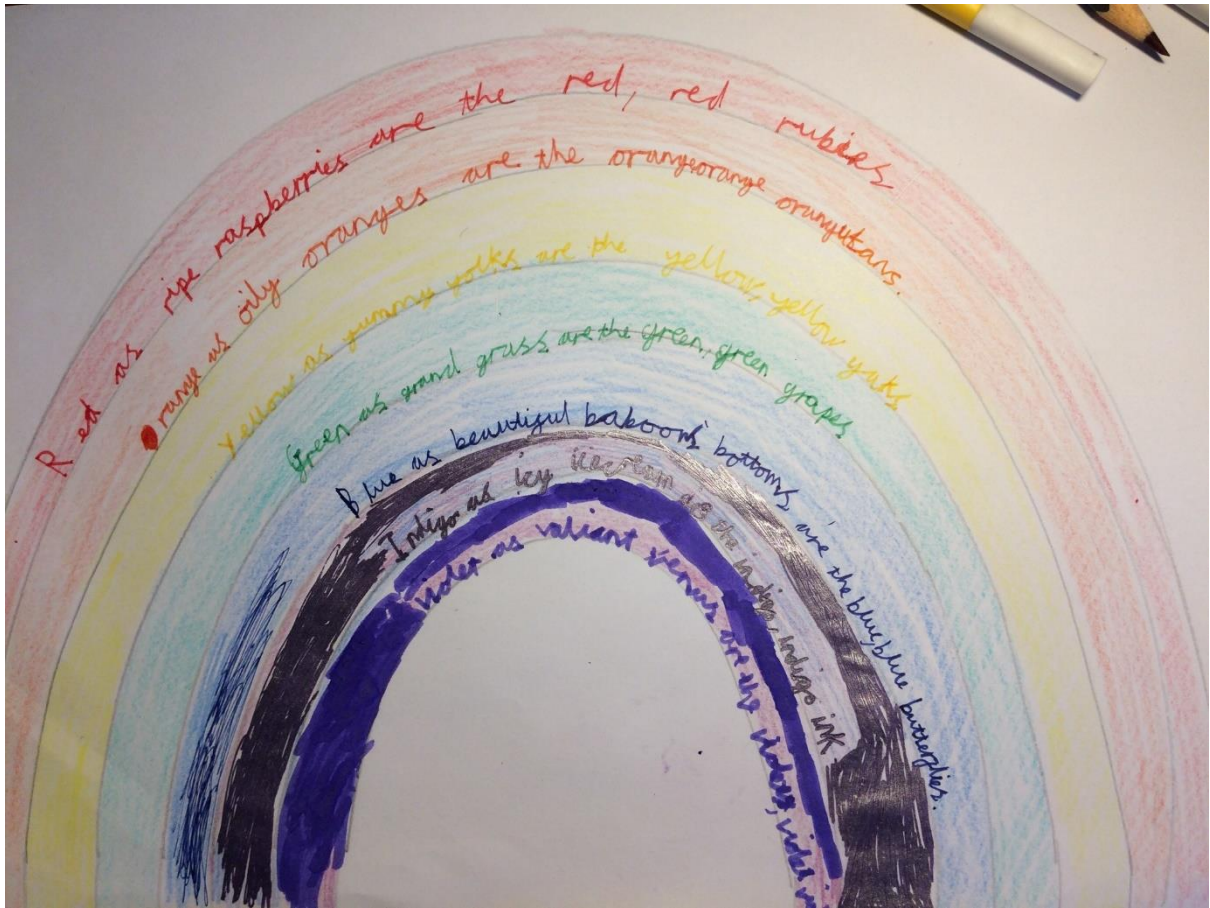 Red as ripe raspberries are the red, red rubies
Orange as oily oranges are the orange orange orangutans.
Yellow as yummy yolks are the yellow, yellow yaks
Green as grand grass are the green, green grapes
Blue as beautiful baboons' bottoms are the blue, blue butterflies.
Indigo as icy the indigo, indigo ink
violet as valiant venus are the violets, violet